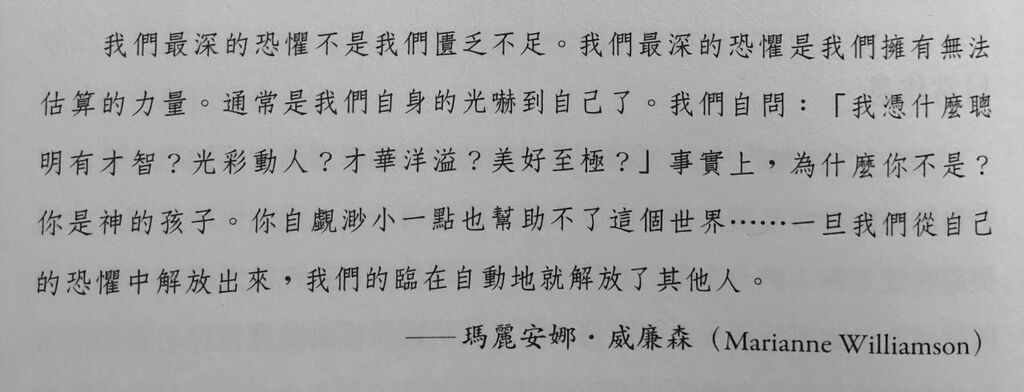 我們最深的恐懼不是我們匱乏不足。我們最深的恐懼是我們擁有無法
估算的力量。通常是我們自身的光嚇到自己了。我們自問：「我憑什麼聰
明有才智？光彩動人？才華洋溢？美好至極？」事實上，為什麼你不是？
你是神的孩子。你自覷渺小一點也幫助不了這個世界……一旦我們從自己
的恐懼中解放出來，我們的臨在自動地就解放了其他人。
——瑪麗安娜・威廉森（Marianne Williamson）